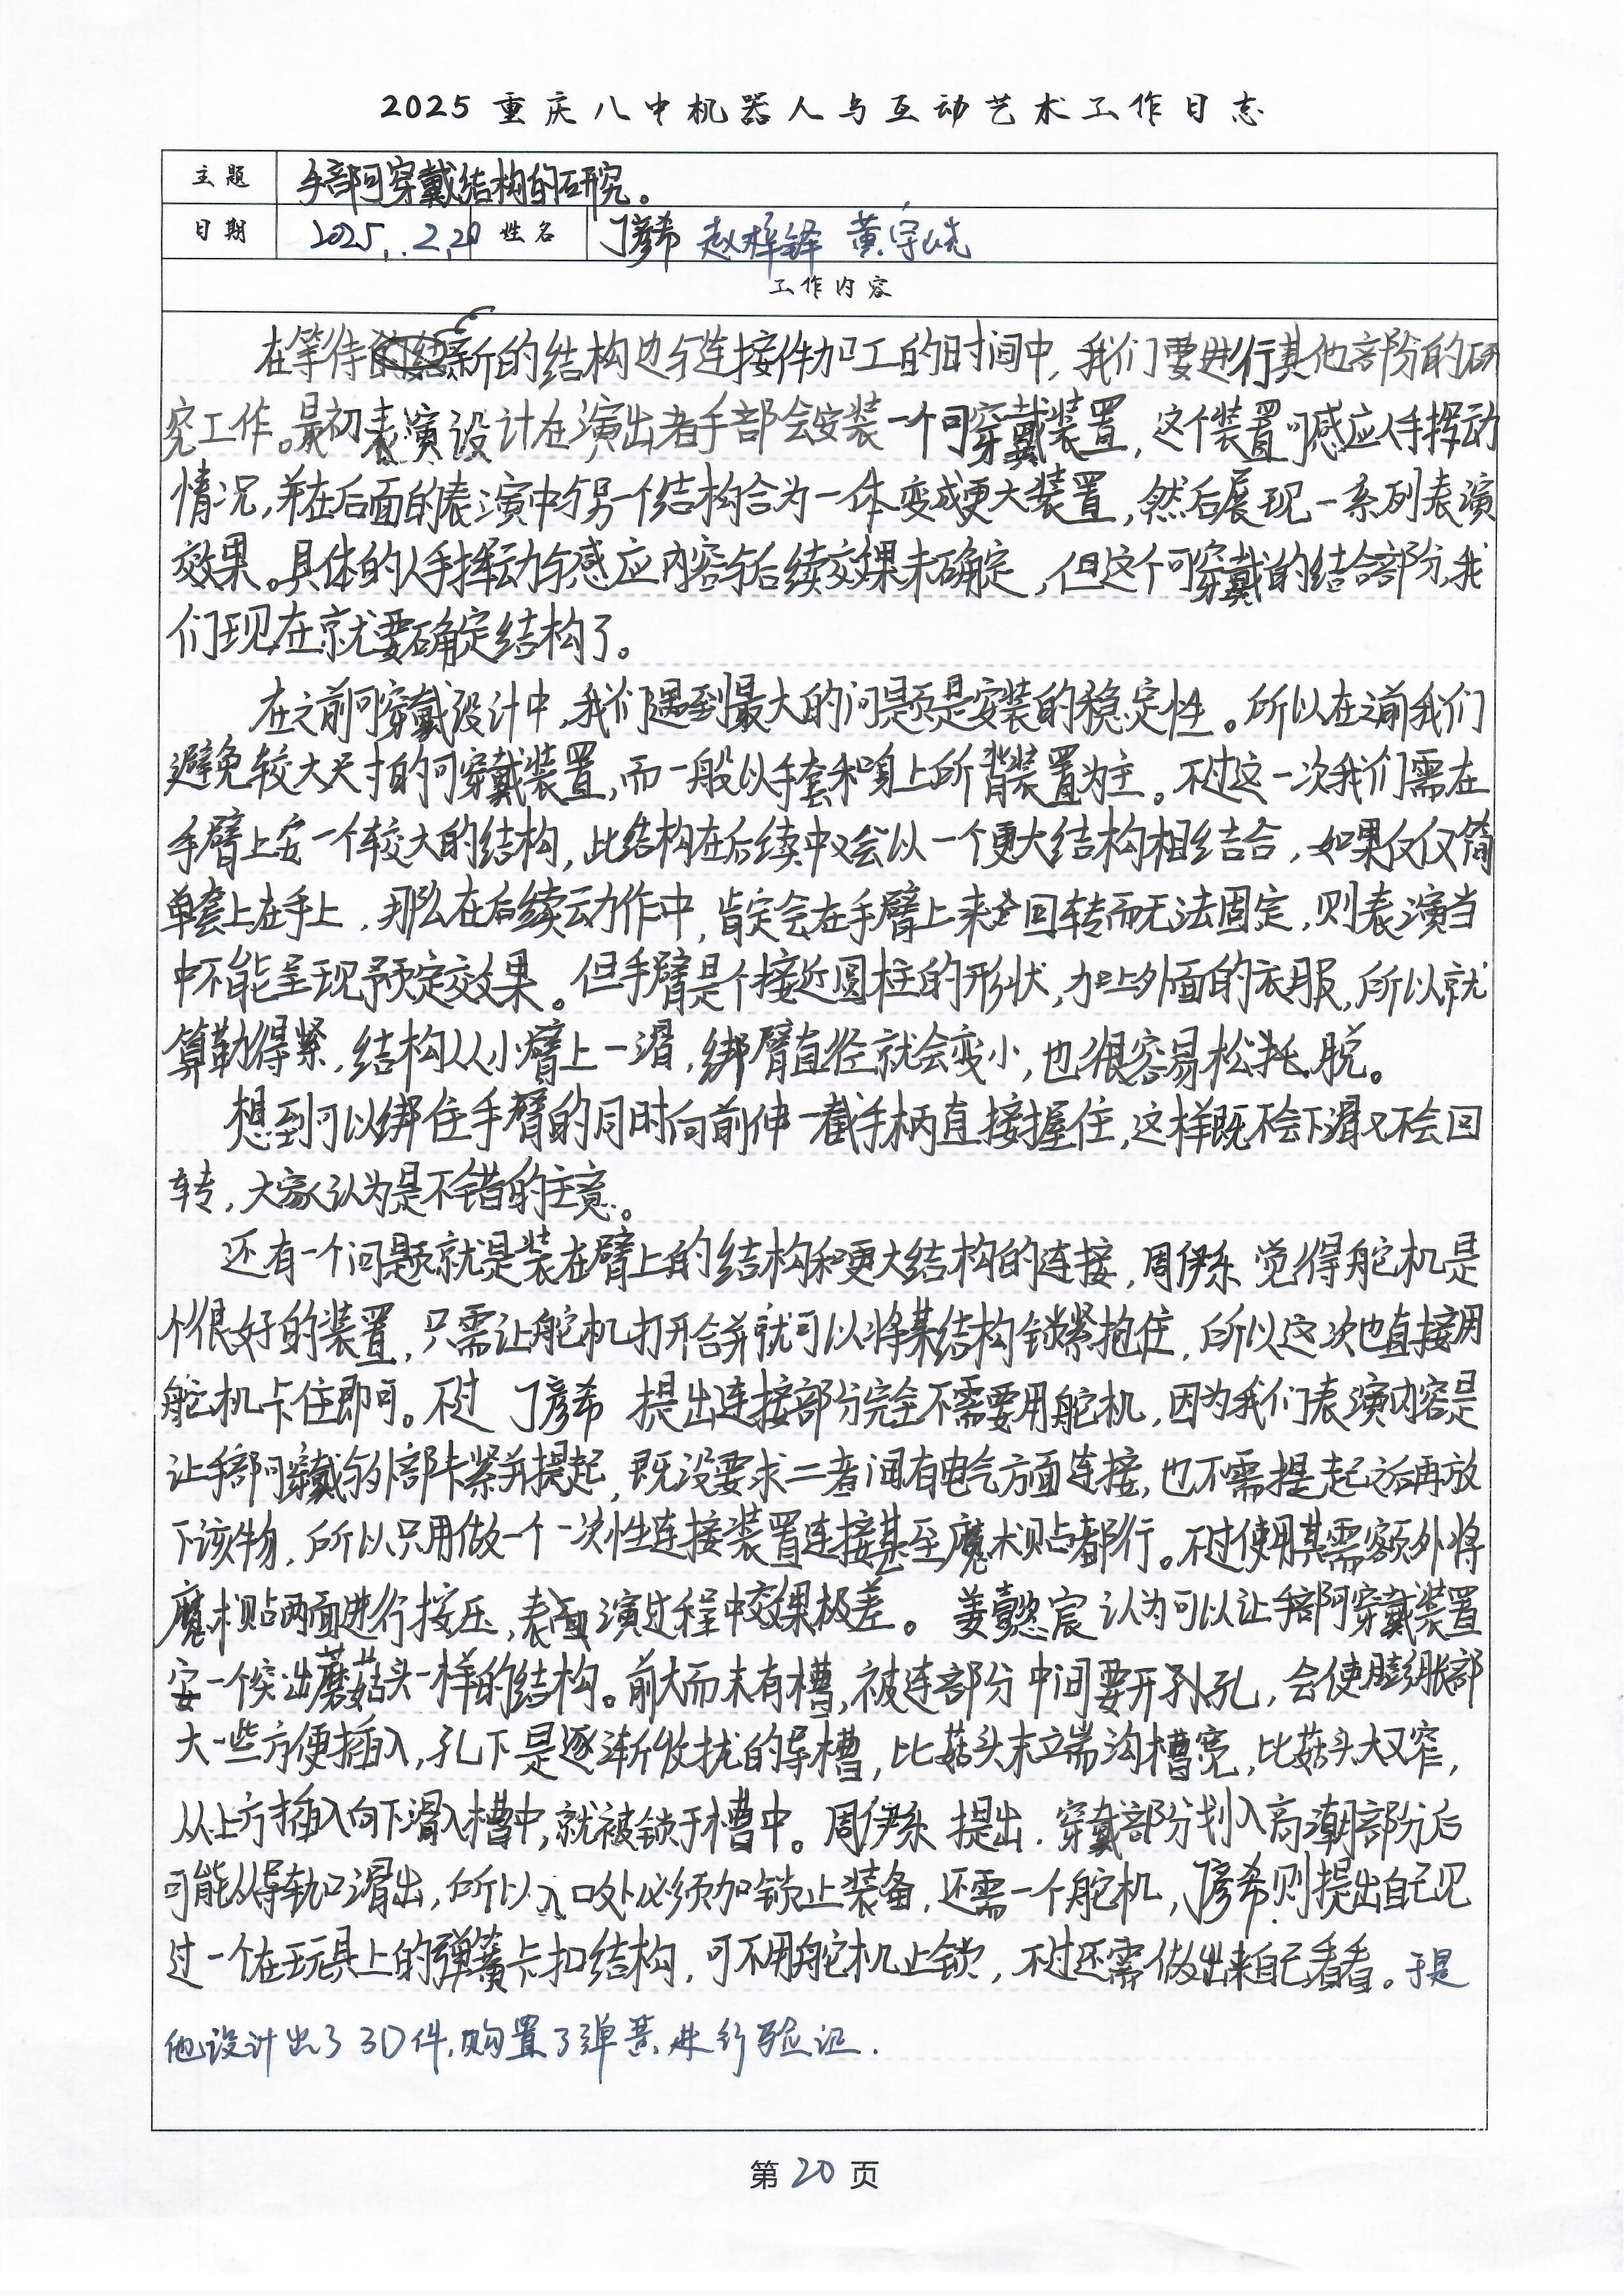 2025重庆八中机器人与互动艺术工作日志
主题 手部可穿戴结构的研究。
日期 2025..2.20 姓名 丁彦希 赵梓铎 黄宇晓
工作内容
在等待新的结构边与连接件加工的时间中,我们要进行其他部份的研
究工作。最初表演设计在演出者手部会安装一个可穿戴装置,这个装置可感应人手挥动
情况,并在后面的表演中与另一个结构合为一体变成更大装置,然后展现一系列表演
效果。具体的人手挥动与感应内容与后续效果未确定,但这个可穿戴的结合部分,我
们现在就要确定结构了。
在之前可穿戴设计中,我们遇到最大的问题是安装的稳定性。所以在之前我们
避免较大尺寸的可穿戴装置,而一般以手套和身上所背装置为主。不过这一次我们需在
手臂上安一个较大的结构,此结构在后续中又会以一个更大结构相结合,如果仅仅简
单套上在手上,那么在后续动作中,肯定会在手臂上来回转而无法固定,则表演当
中不能呈现予预定效果。但手臂是个接近圆柱的形状,加上外面的衣服,所以就
算勒得紧,结构从小臂上一滑,绑臂直径就会变小,也很容易松托脱。
想到可以绑住手臂的同时向前伸一截手柄直接握住,这样既不会下滑又不会回
转,大家认为是不错的主意。
还有一个问题就是装在臂上的结构和更大结构的连接,周伊乐觉得舵机是
个很好的装置,只需让舵机打开合并就可以将某结构锁紧抱住,所以这次也直接用
舵机卡住即可。不过 丁彦希 提出连接部分完全不需要用舵机,因为我们表演内容是
让手部可穿戴与外部卡紧并提起,既没要求二者间有电气方面连接,也不需提起之后再放
下该物,所以只用做一个一次性连接装置连接甚至魔术贴都行。不过使用其需额外将
魔术贴两面进行按压,表演过程中效果极差。姜懿宸认为可以让手部可穿戴装置
安一个突出蘑菇头一样的结构。前大而末有槽,被连部分中间要开孔,会使膨胀部
大一些方便插入,孔下是逐渐收拢的导槽,比菇头末端沟槽宽,比菇头大又窄,
从上方插入向下滑入槽中,就被锁于槽中。周伊乐 提出.穿戴部分划入高潮部分后
可能从导轨口滑出,所以入口处必须加锁止装备,还需一个舵机,丁彦希则提出自己见
过一个在玩具上的弹簧卡扣结构,可不用舵机止锁,不过还需做出来自己看看。于是
他设计出了3D件,购置了弹簧进行验证.
第20页